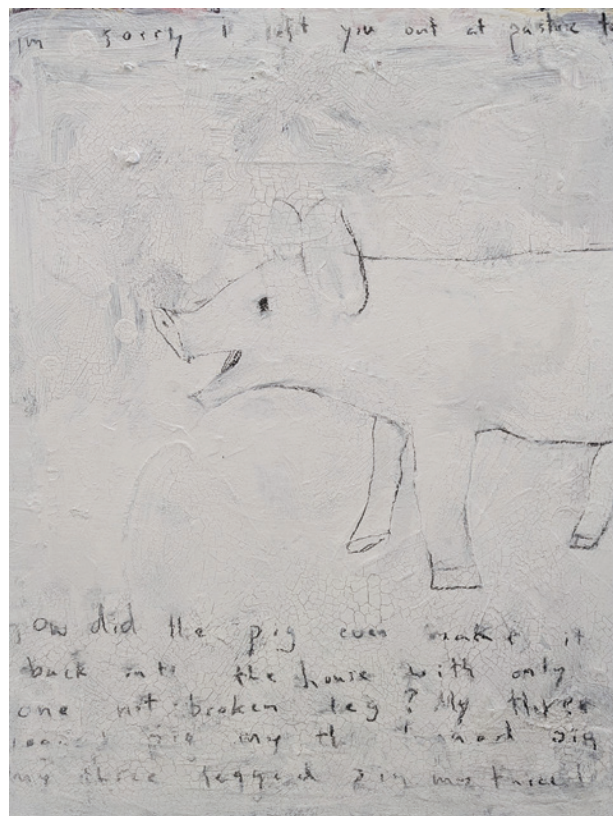 im sorry I left you out at pasture
ow did the pig even make it
back into the house with only
one not broken leg? My three
pig my
my three legged pig my three